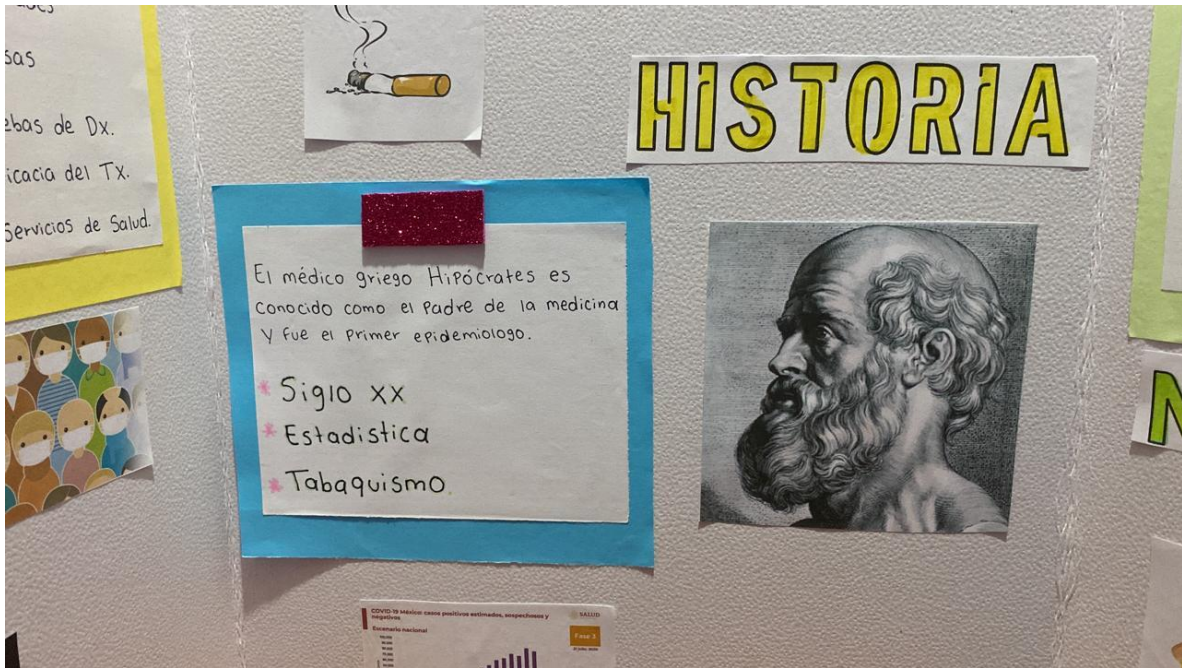 sas
ebas de Dx.
icacia del Tx.
Servicios de Salud.
HISTORIA
El médico griego Hipócrates es
conocido como el Padre de la medicina
y fue el primer epidemiologo.
* Siglo XX
* Estadistica
* Tabaquismo.
COVID-19 México: casos positivos estimados, sospechosos y
negativos
SALUD
Escenario nacional
Fase 3
N